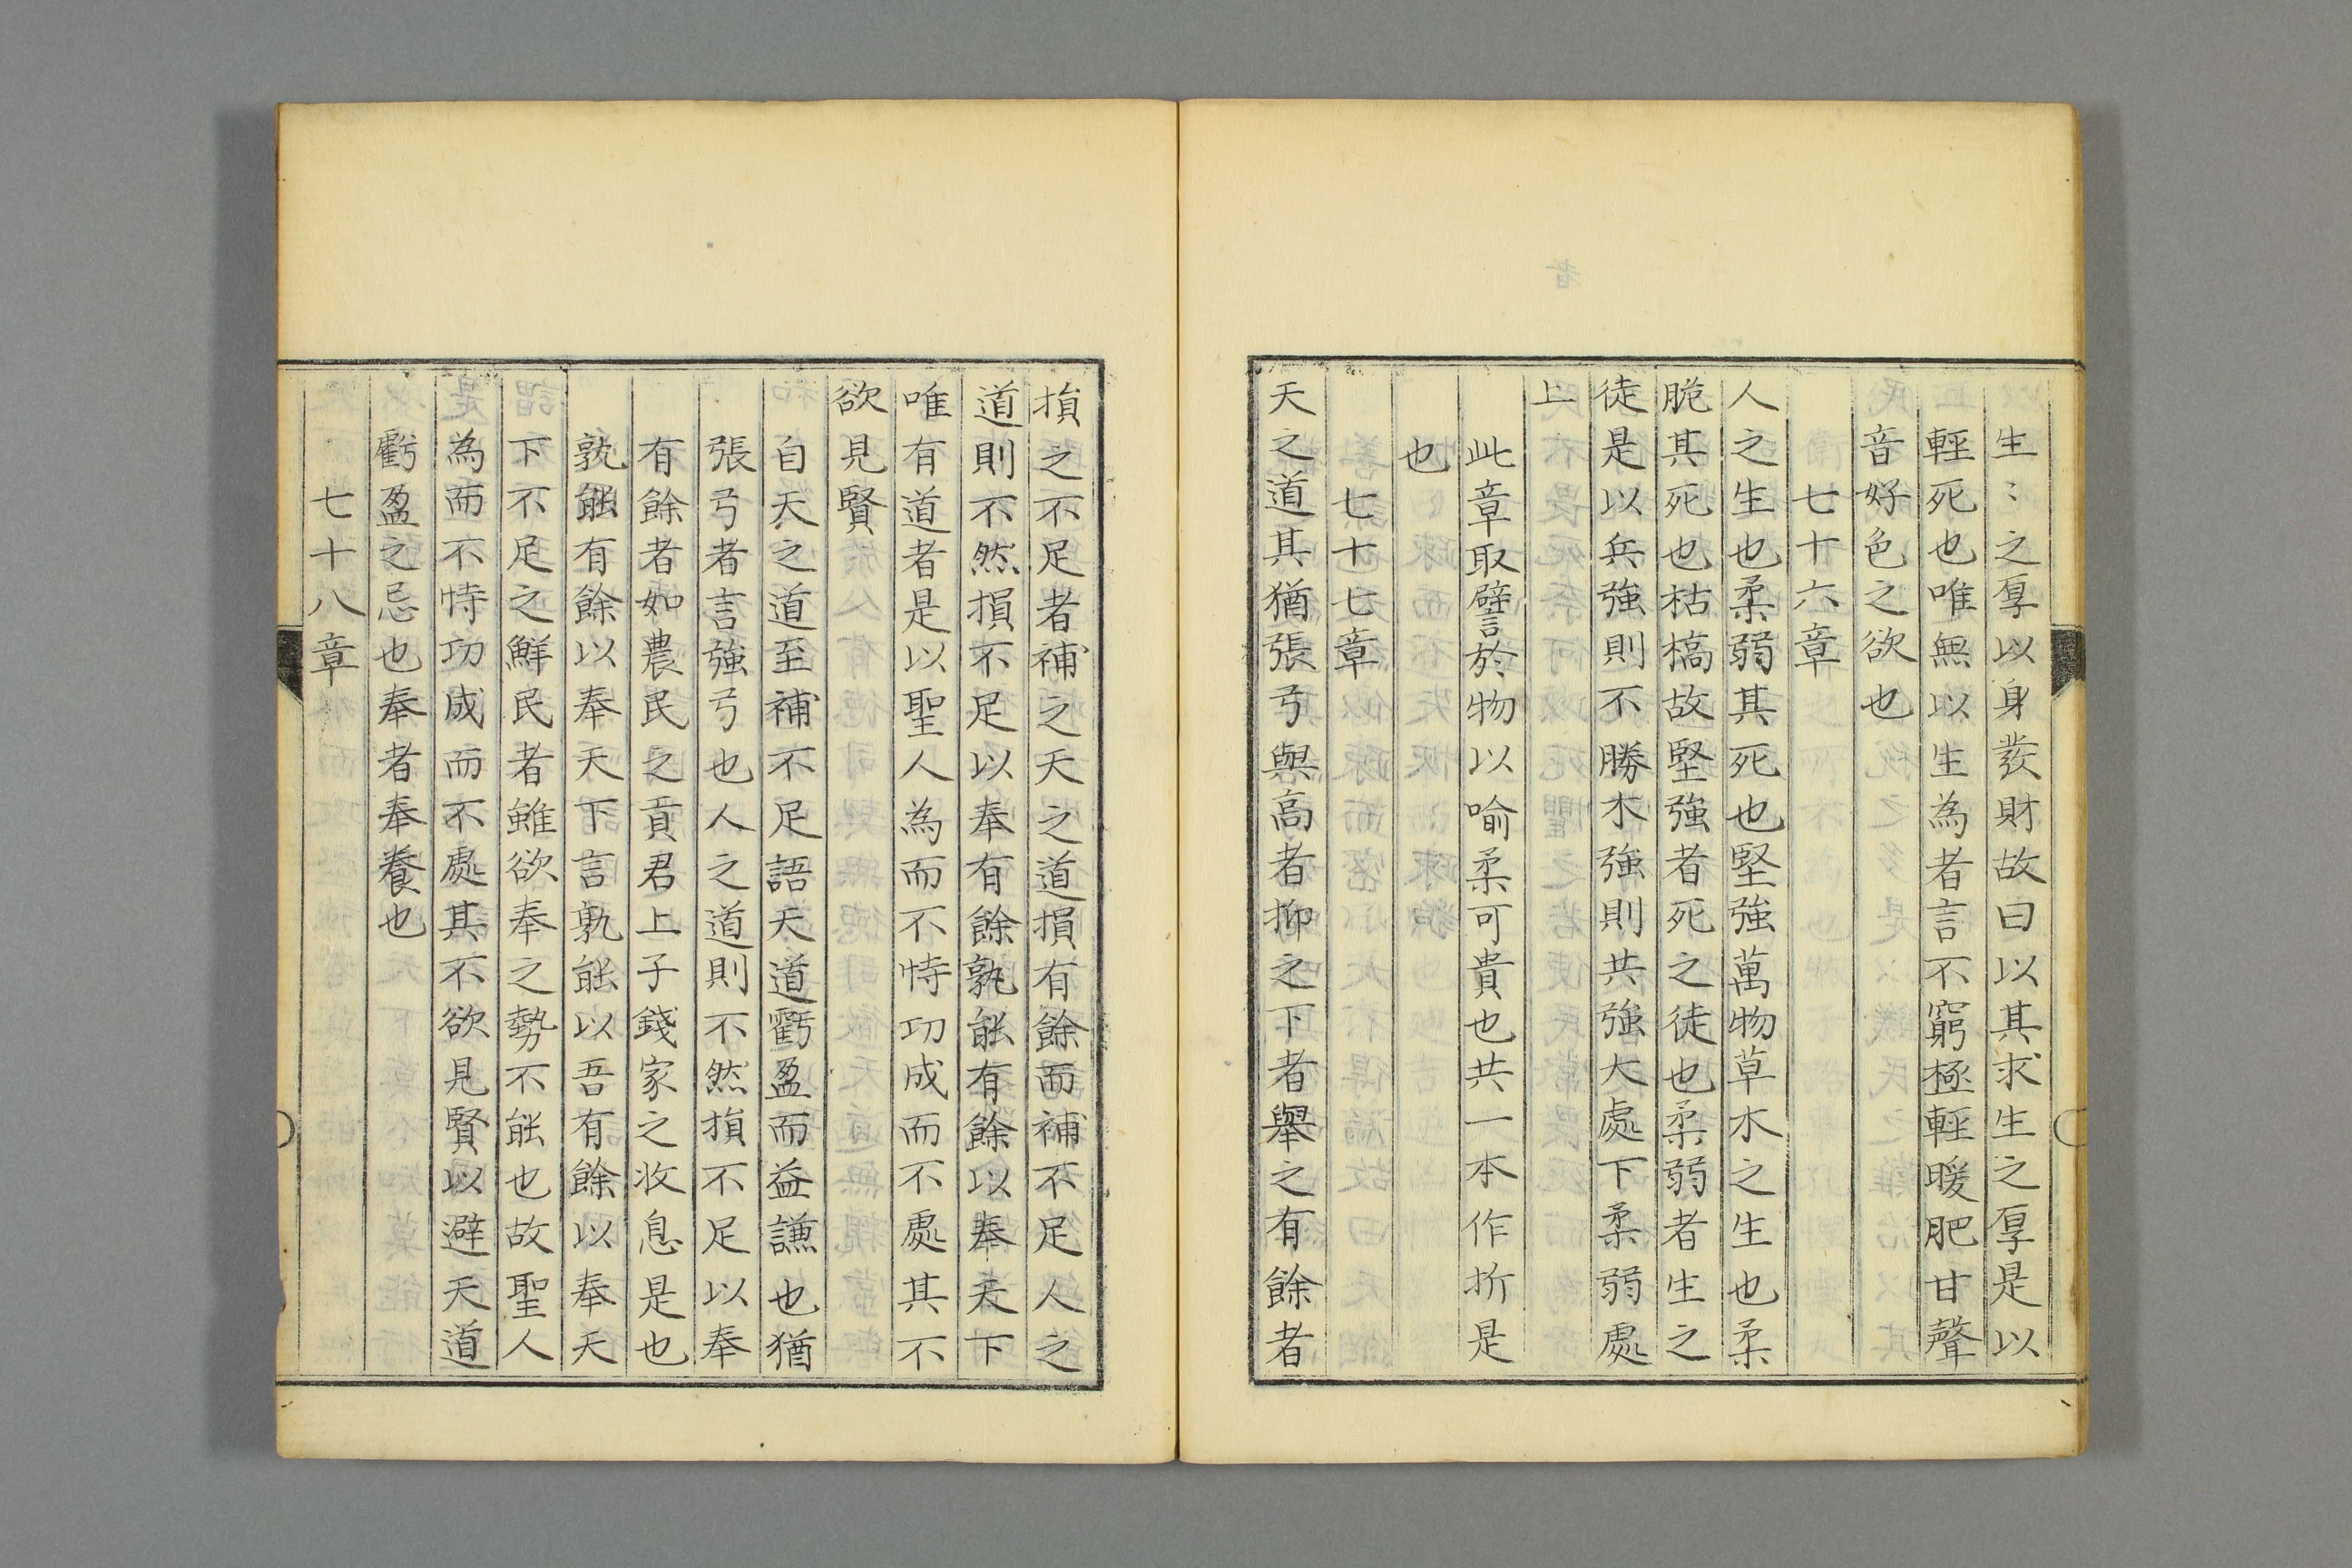 生〻之厚以身發財故曰以其求生之厚是以
輕死也唯無以生為者言不窮極輕暖肥甘聲
音好色之欲也
七十六章
人之生也柔弱其死也堅強萬物草木之生也柔
脆其死也枯槁故堅強者死之徒也柔弱者生之
徒是以兵強則不勝木強則共強大處下柔弱處
上
此章取譬於物以喻柔可貴也共一本作折是
也
七十七章
天之道其猶張弓與高者抑之下者舉之有餘者
損之不足者補之天之道損有餘而補不足人之
道則不然損不足以奉有餘孰能有餘以奉天下
唯有道者是以聖人為而不恃功成而不處其不
欲見賢
自天之道至補不足語天道虧盈而益謙也猶
張弓者言強弓也人之道則不然損不足以奉
有餘者如農民之貢君上子錢家之收息是也
孰能有餘以奉天下言孰能以吾有餘以奉天
下不足之鮮民者雖欲奉之勢不能也故聖人
為而不恃功成而不處其不欲見賢以避天道
虧盈之忌也奉者奉養也
七十八章